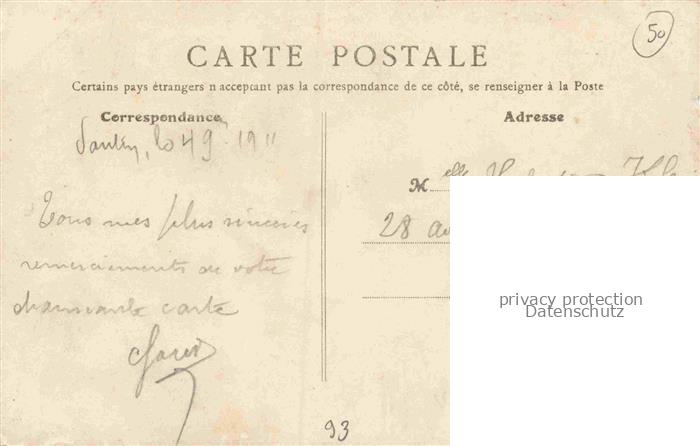 50
CARTE POSTALE
Certains pays étrangers n'acceptant pas la correspondance de ce côté, se renseigner à la Poste
Correspondance
Adresse
le 4 9 1911
M elle
Tous mes plus sincères
28 av
remerciements de votre
charmante carte
privacy protection
Datenschutz
93